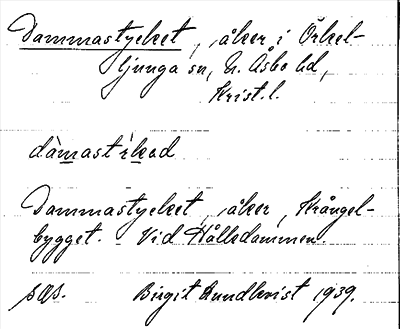 Dammastycket, åker i Örkel-
ljunga sn, N. Åsbo hd,
Krist. l.
dàmast ̀ikəd
Dammastycket, åker, Skångel-
bygget. Vid Hålledammen.
SOS. Birgit Rundkvist 1939.